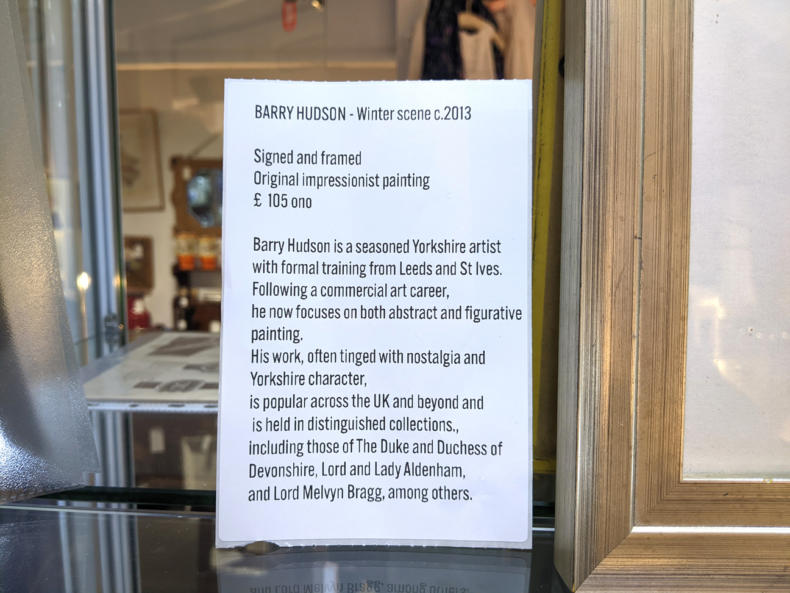 BARRY HUDSON - Winter scene c.2013
Signed and framed
Original impressionist painting
£ 105 ono
Barry Hudson is a seasoned Yorkshire artist
with formal training from Leeds and St Ives.
Following a commercial art career,
he now focuses on both abstract and figurative
painting.
His work, often tinged with nostalgia and
Yorkshire character,
is popular across the UK and beyond and
is held in distinguished collections.,
including those of The Duke and Duchess of
Devonshire, Lord and Lady Aldenham,
and Lord Melvyn Bragg, among others.